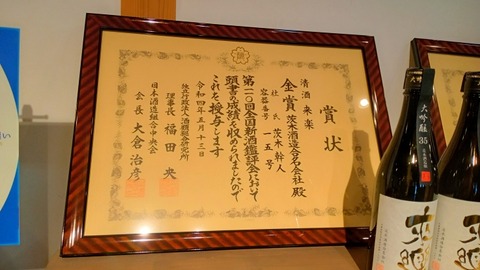 賞状
清酒 来楽
金賞 茨木酒造合名会社 殿
杜氏 茨木幹人
容器番号 一五号
第一一〇回全国新酒鑑評会において
頭書の成績を収められましたので
これを授与します
令和四年五月十三日
独立行政法人酒類総合研究所
理事長 福田 央
日本酒造組合中央会
会長 大倉治彦
大吟醸 35
来楽